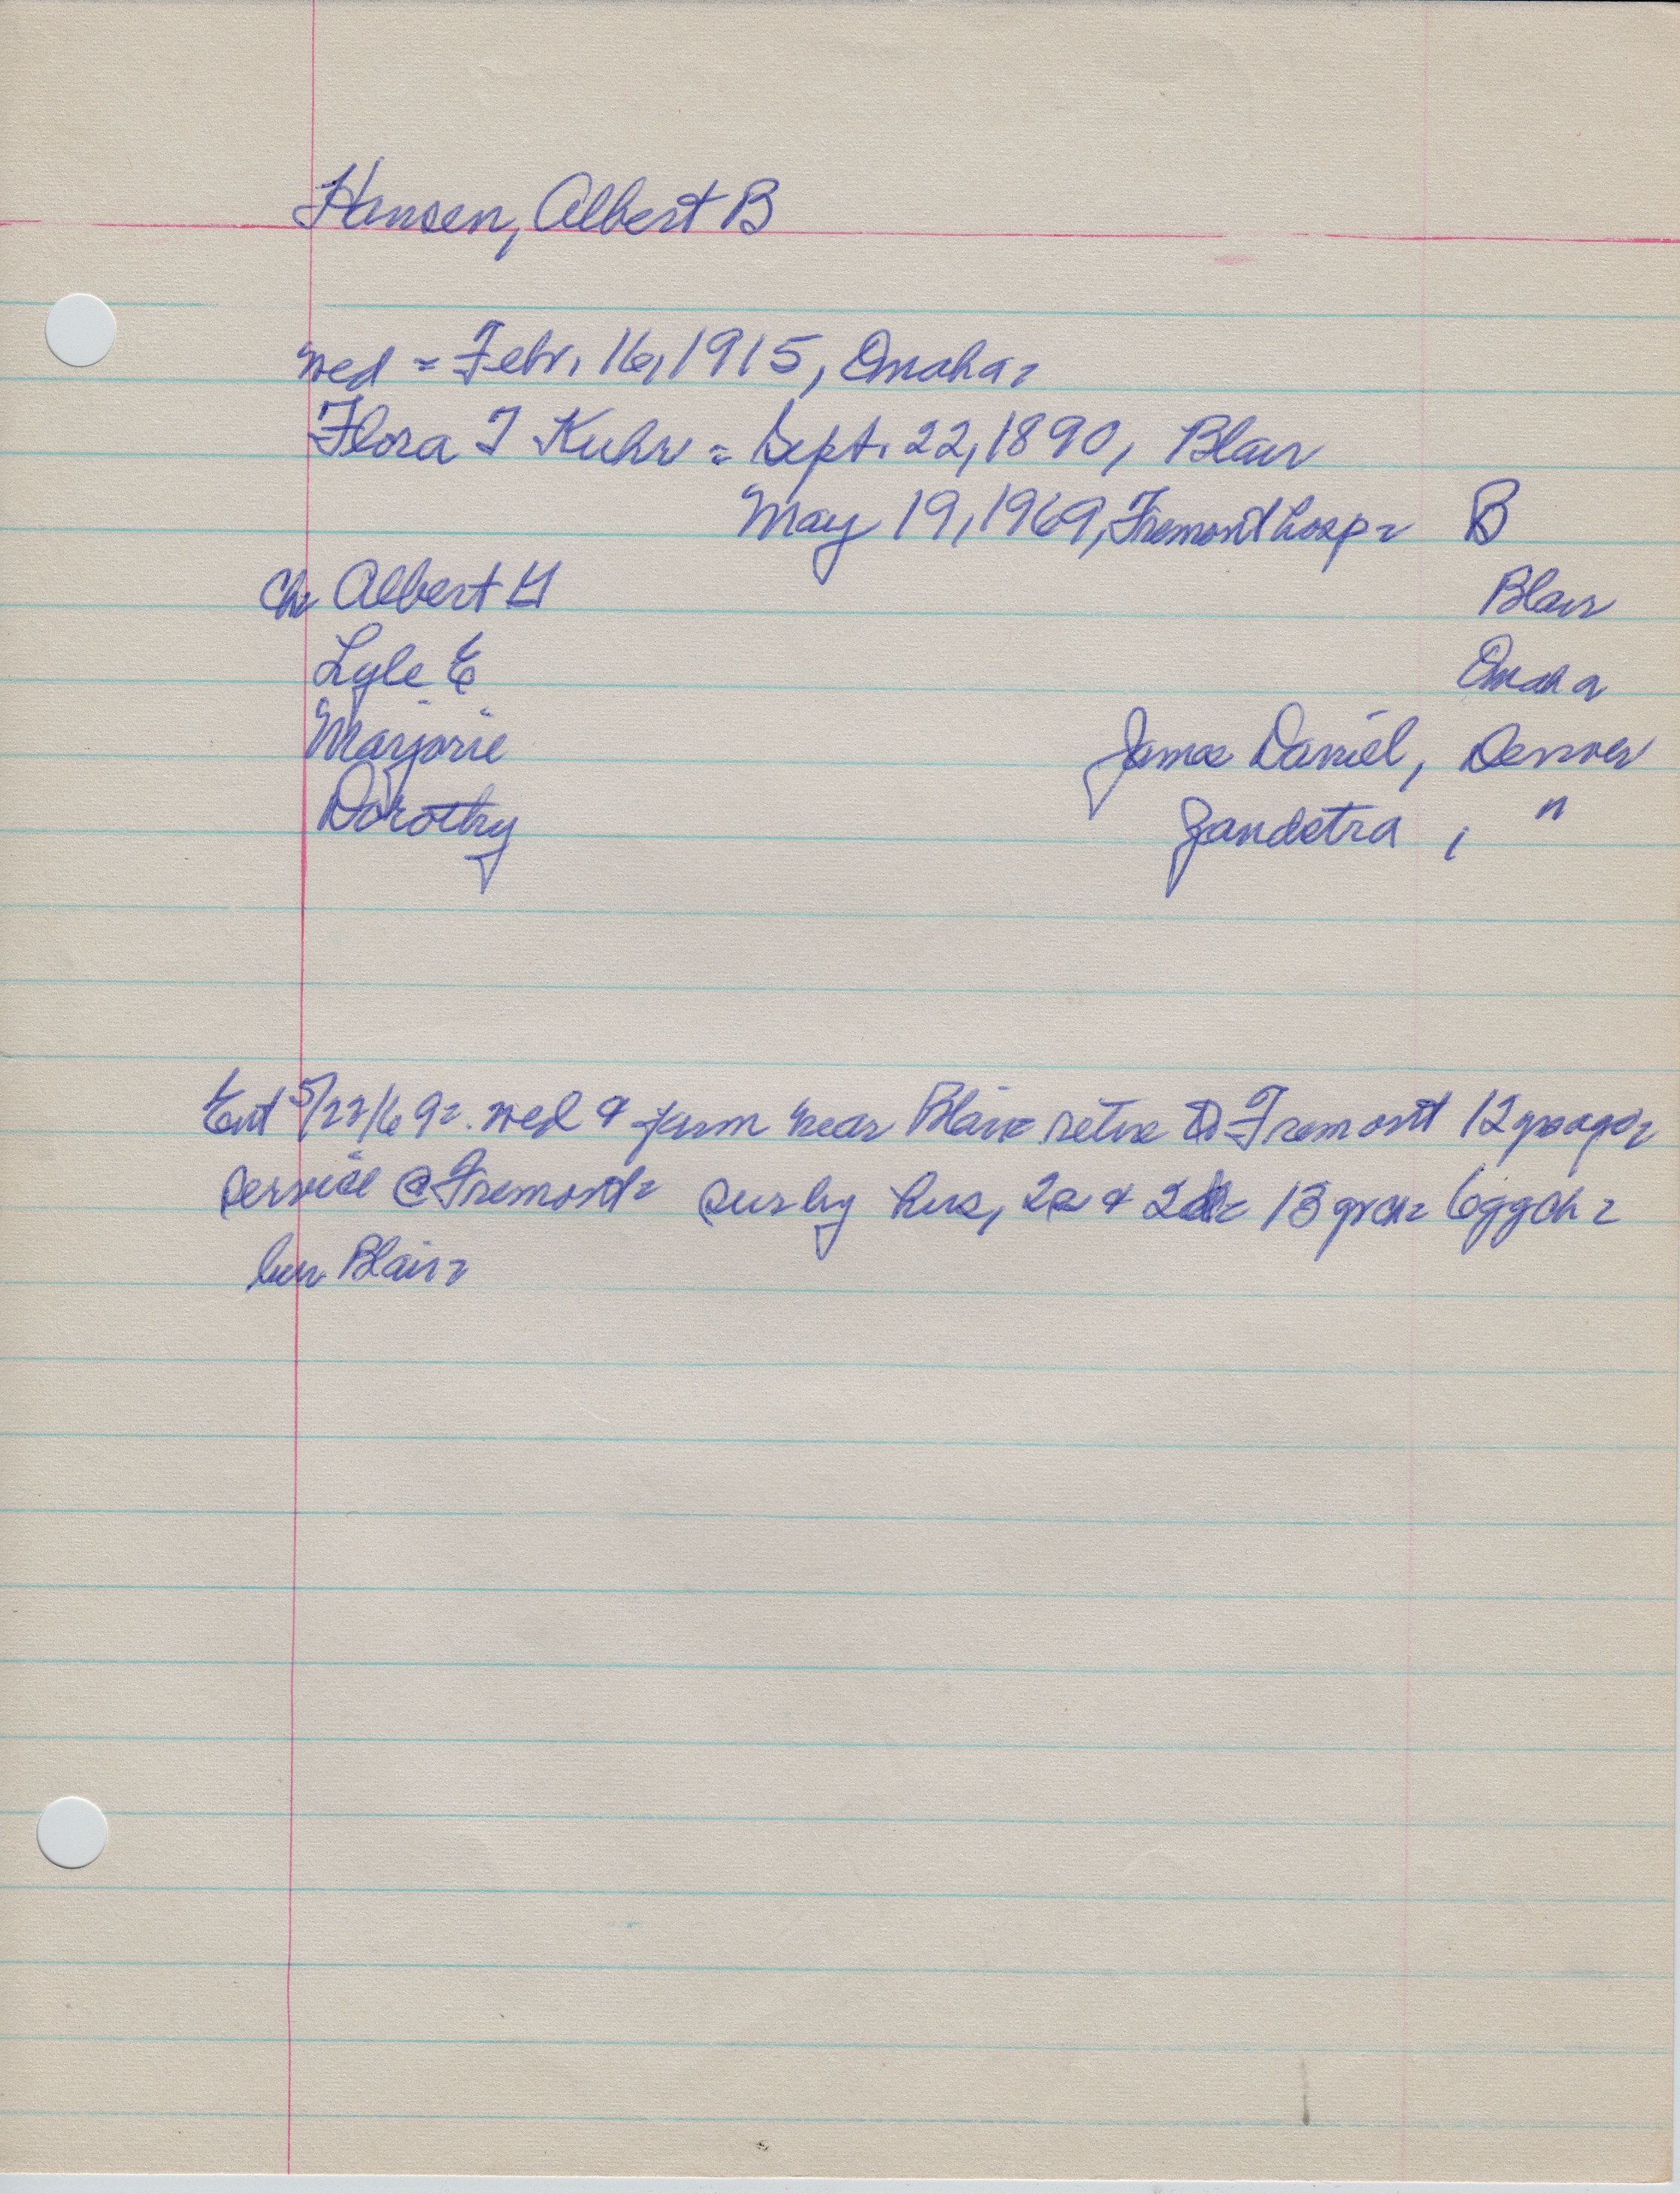 Hansen, Albert B
wed = Febr. 16, 1915, Omaha =
Flora T Kuhr = Sept. 22, 1890, Blair
May 19, 1969, Fremont hosp = B
Ch Albert G Blair
Lyle E Omaha
Marjorie James Daniel, Denver
Dorothy Zandstra , "
Ent 5/22/69 = wed & farm near Blair = retire to Fremont 12 yrs ago =
Service @ Fremont = sur by hus, 2s & 2d = 13 grch = 6 ggch =
bur Blair =